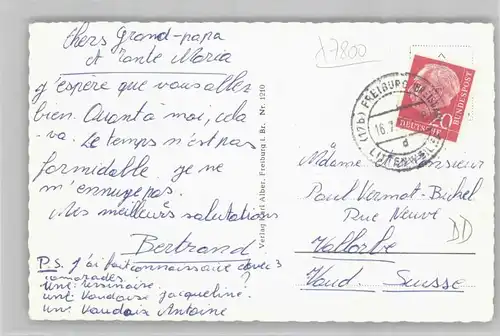 Chers Grand-papa
et Tante Maria
J'espère que vous allez
bien. Quant à moi, cela
va. Le temps n'est pas
formidable je ne
m'ennuye pas.
Mes meilleurs salutations
Bertrand
P.S. J'ai fait connaissance avec 3
camarades. ?
une:
une Vaudoise Jacqueline.
un: Vaudois Antoine
Verlag Karl Alber, Freiburg i. Br. Nr. 1210
17800
(17b) FREIBURG
16.7
d
LITTENWEILER
20
DEUTSCHE BUNDESPOST
Madame Monsieur
Paul Vermot-Buhel
Rue Neuve
DD
Vallorbe
Vaud. Suisse